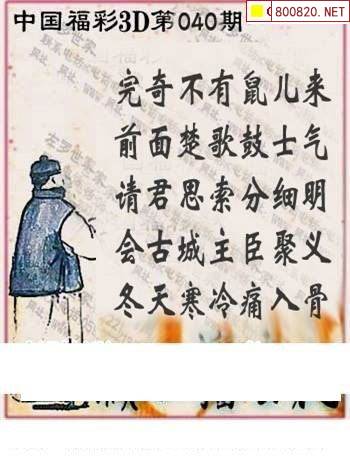 中国福彩3D第040期
800820.NET
完奇不有鼠儿来
前面楚歌鼓士气
请君思索分细明
会古城主臣聚义
冬天寒冷痛入骨